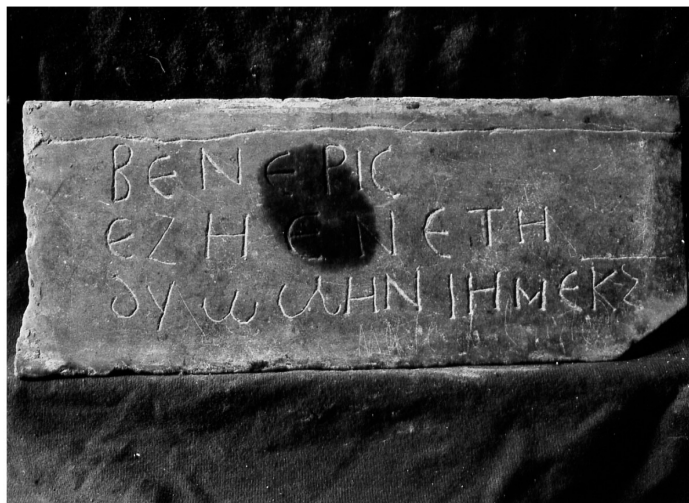 ΒΕΝΕΡΙϹ
ΕΖΗΕΝΕΤΗ
ΔΥΩΩΗΝΙΗΜΕΚϚ